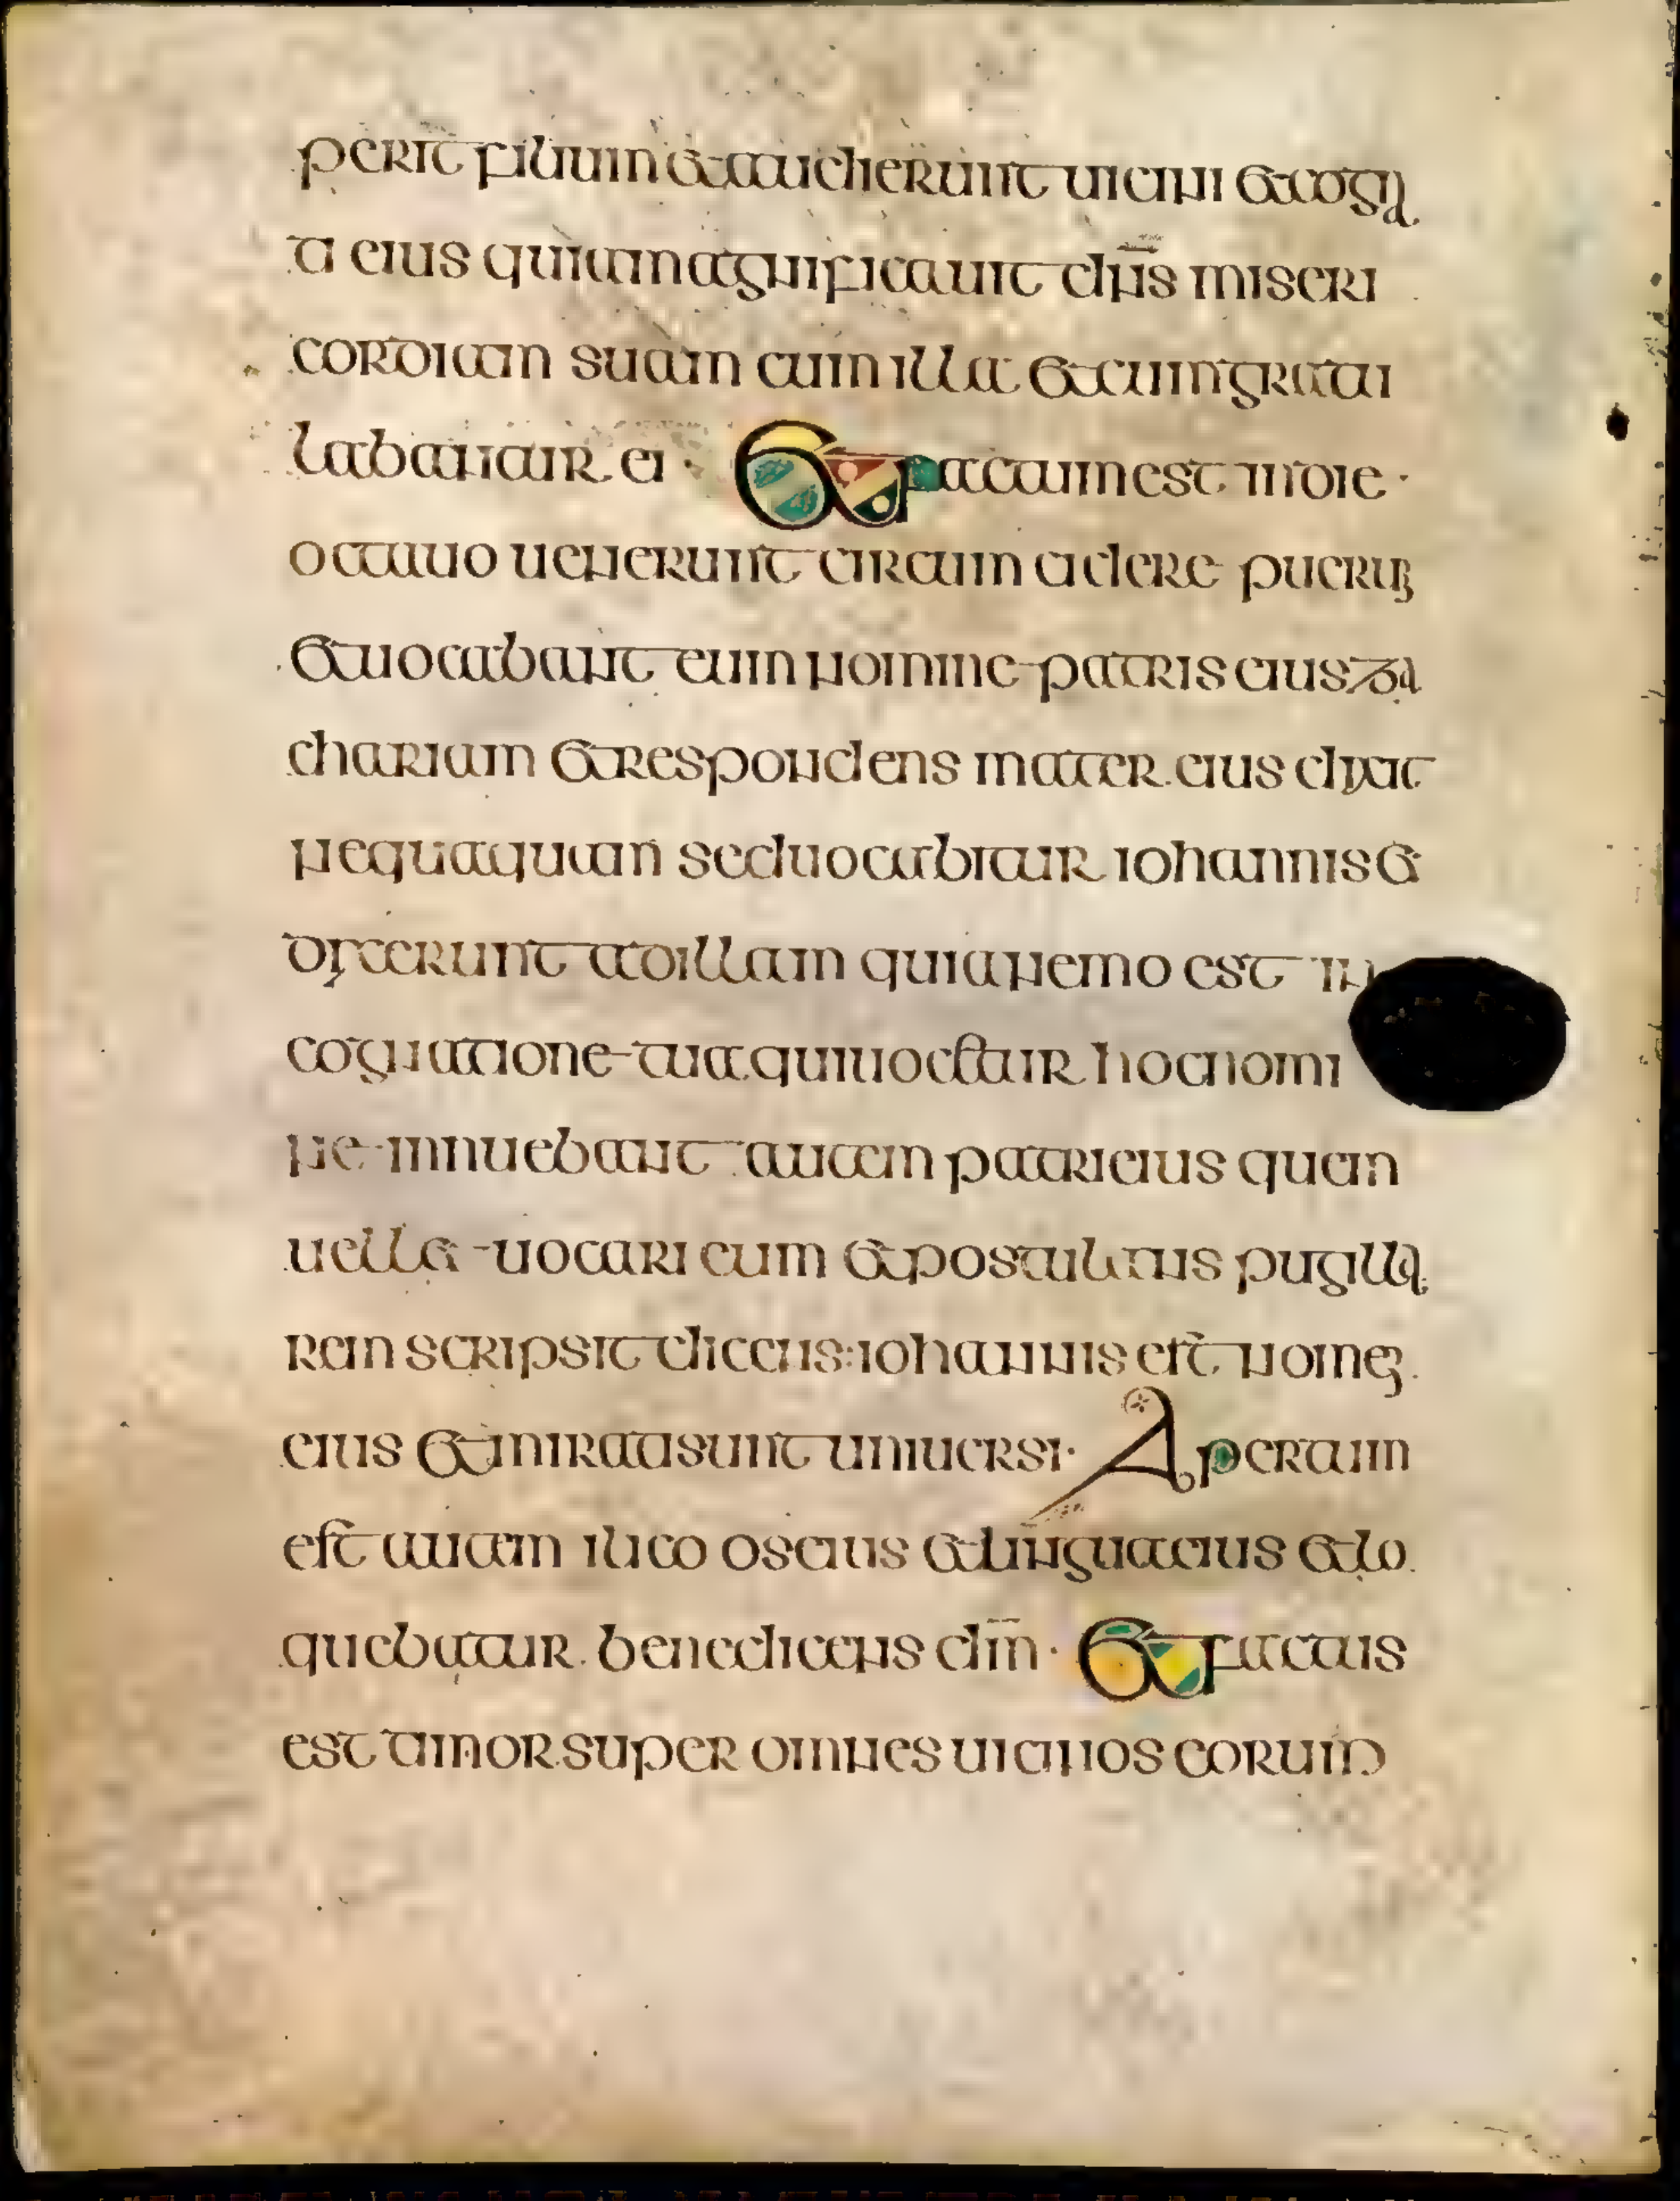 perit filium & audierunt uicini & cogna
ti eius quia magnificauit dns miseri
cordiam suam cum illa & cumgratu
labantur ei · Et factum est in die ·
octauo uenerunt circumcidere puerum
& uocabant eum nomine patris eius za
chariam & respondens mater eius dixit
nequaquam sed uocabitur iohannis &
dixerunt ad illam quia nemo est in
cognatione tua qui uocetur hoc nomi
ne innuebant autem patri eius quem
uell& uocari eum & postulans pugilla
rem scripsit dicens: iohannis est nomen
eius & mirati sunt uniuersi · Apertum
est autem ilico os eius & lingua eius & lo
quebatur benedicens dm · Et factus
est timor super omnes uicinos eorum